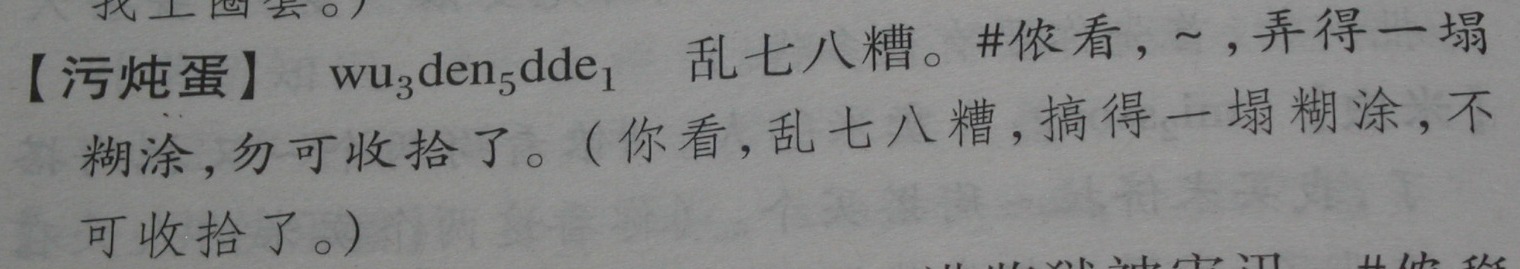 我上圈套。)
【污炖蛋】 wu₃den₅dde₁ 乱七八糟。#侬看,~,弄得一塌
糊涂,勿可收拾了。(你看,乱七八糟,搞得一塌糊涂,不
可收拾了。)